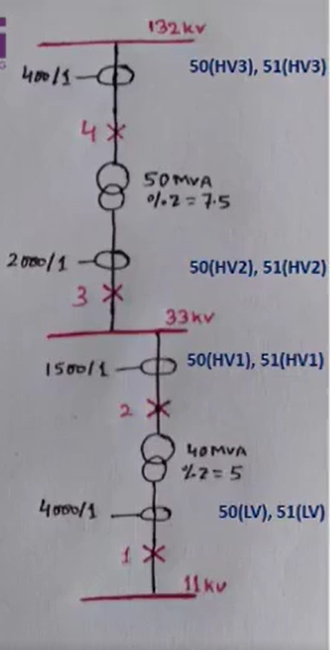 132kv
400/1
50(HV3), 51(HV3)
4
50MVA
%Z = 7.5
2000/1
50(HV2), 51(HV2)
3
33kv
1500/1
50(HV1), 51(HV1)
2
40MVA
%Z = 5
4000/1
50(LV), 51(LV)
1
11kv